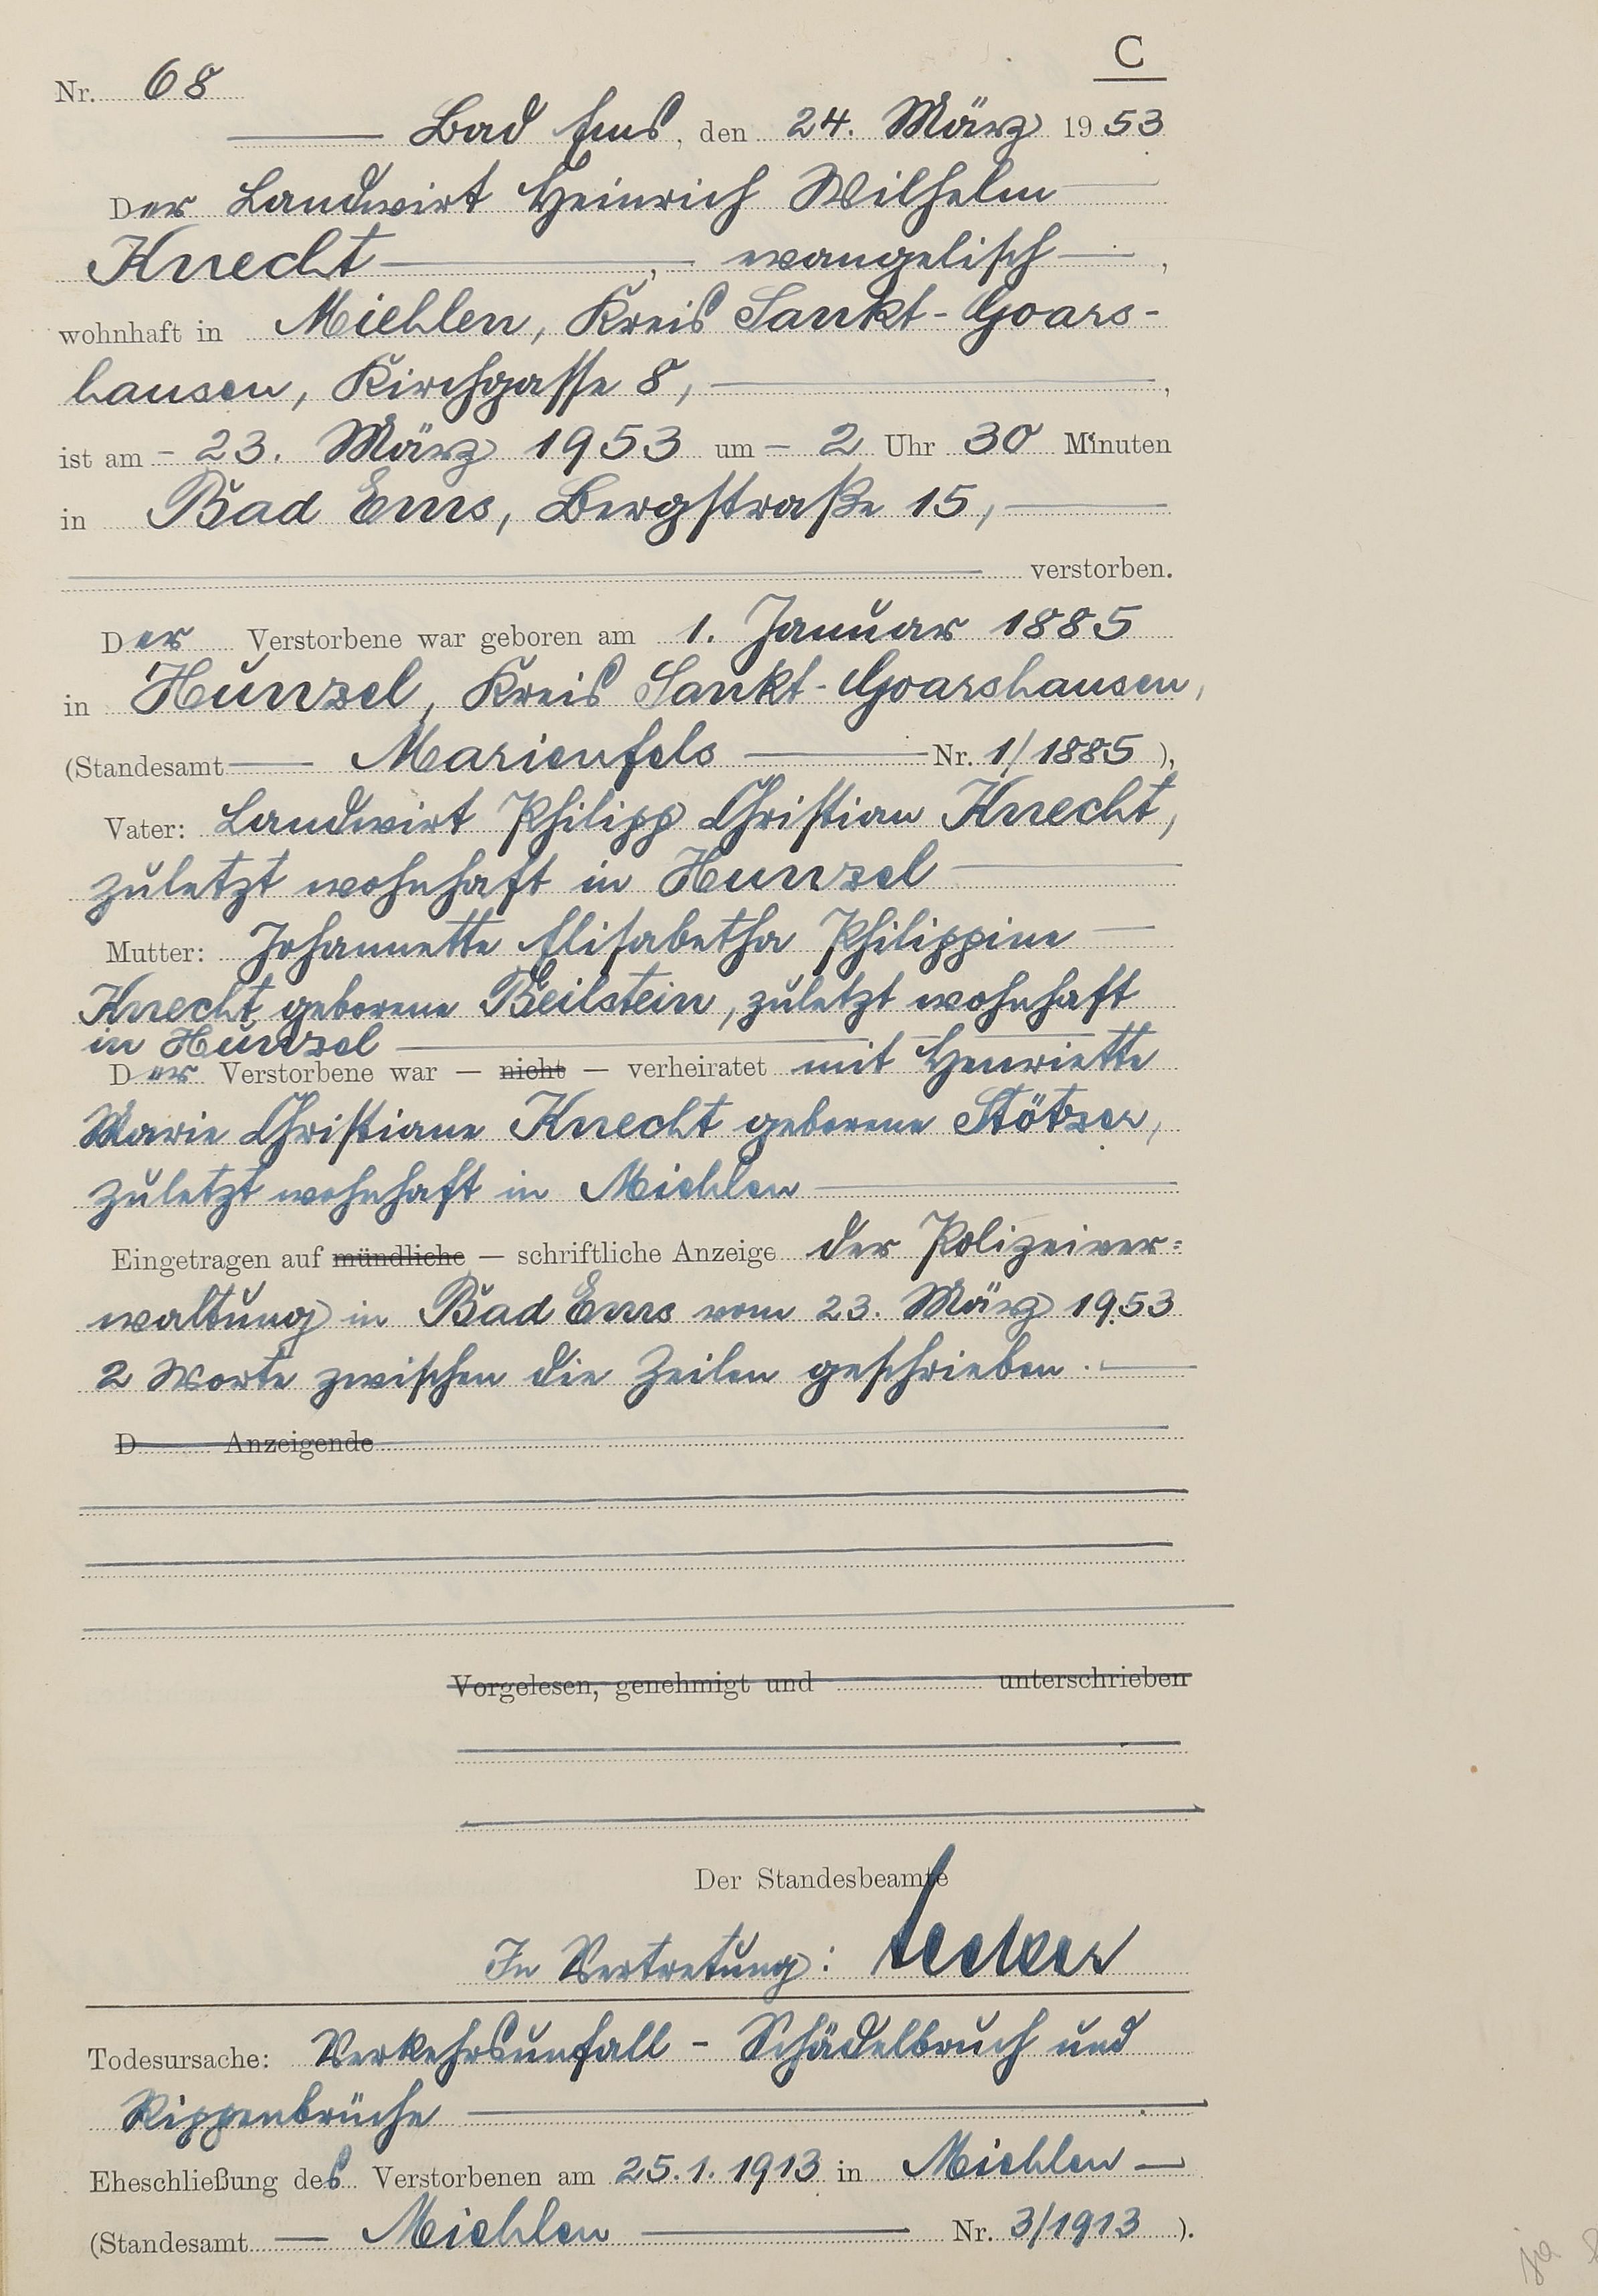 C
Nr. 68
Bad Ems, den 24. März 1953
Der Landwirt Heinrich Wilhelm
Knecht, evangelisch,
wohnhaft in Miehlen, Kreis Sankt-Goars-
hausen, Kirchgasse 8,
ist am - 23. März 1953 um - 2 Uhr 30 Minuten
in Bad Ems, Bergstraße 15,
verstorben.
Der Verstorbene war geboren am 1. Januar 1885
in Hunzel, Kreis Sankt-Goarshausen,
(Standesamt Marienfels Nr. 1/1885),
Vater: Landwirt Philipp Christian Knecht,
zuletzt wohnhaft in Hunzel
Mutter: Johannette Elisabetha Philippine
Knecht geborene Beilstein, zuletzt wohnhaft
in Hunzel
Der Verstorbene war — nicht — verheiratet mit Henriette
Marie Christiane Knecht geborene Stötzer,
zuletzt wohnhaft in Miehlen
Eingetragen auf mündliche — schriftliche Anzeige der Polizeiver=
waltung in Bad Ems vom 23. März 1953
2 Worte zwischen die Zeilen geschrieben.
D Anzeigende
Vorgelesen, genehmigt und unterschrieben
Der Standesbeamte
In Vertretung:
Todesursache: Verkehrsunfall - Schädelbruch und
Rippenbrüche
Eheschließung des Verstorbenen am 25.1.1913 in Miehlen
(Standesamt Miehlen Nr. 3/1913).